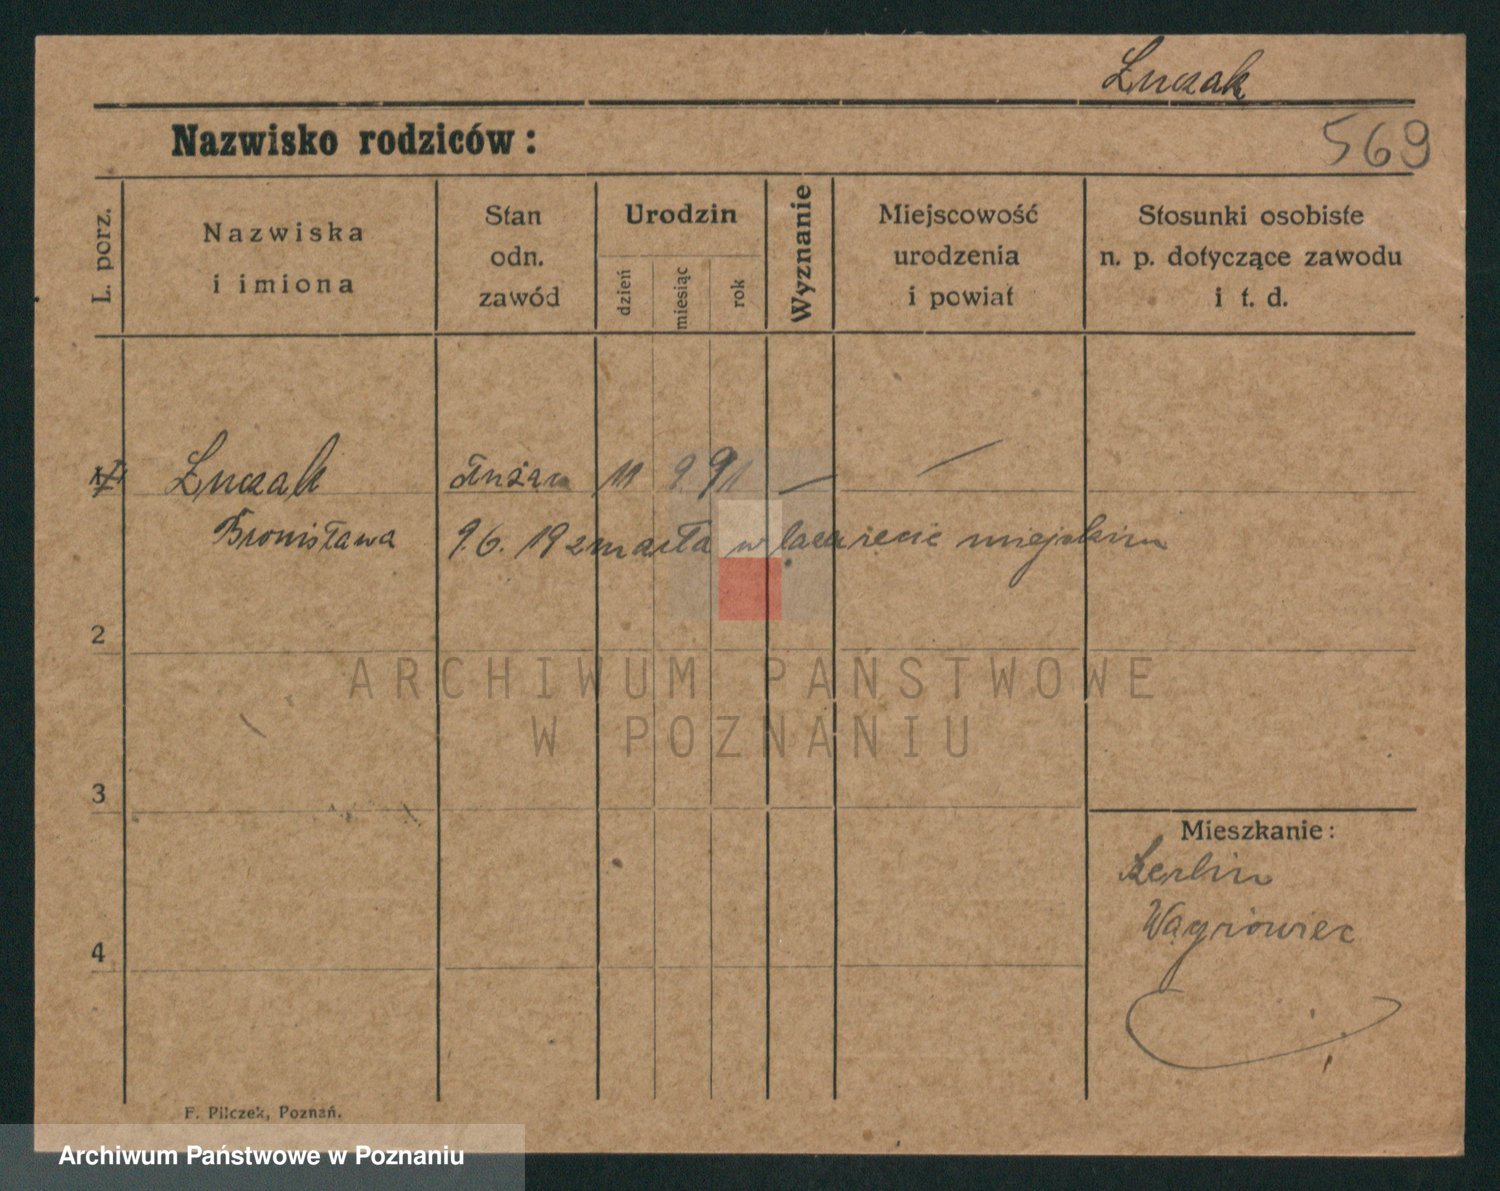 Łuczak
Nazwisko rodziców:
569
L. porz.
Nazwiska
i imiona
Stan
odn.
zawód
Urodzin
dzień
miesiąc
rok
Wyznanie
Miejscowość
urodzenia
i powiat
Stosunki osobiste
n. p. dotyczące zawodu
i t. d.
Łuczak 11 9 91 — —
Bronisława 9.6.19 zmarła w lazarecie miejskim
2
ARCHIWUM PAŃSTWOWE
W POZNANIU
3
Mieszkanie:
Berlin
Wągrowiec
4
F. Pilczek, Poznań.
Archiwum Państwowe w Poznaniu